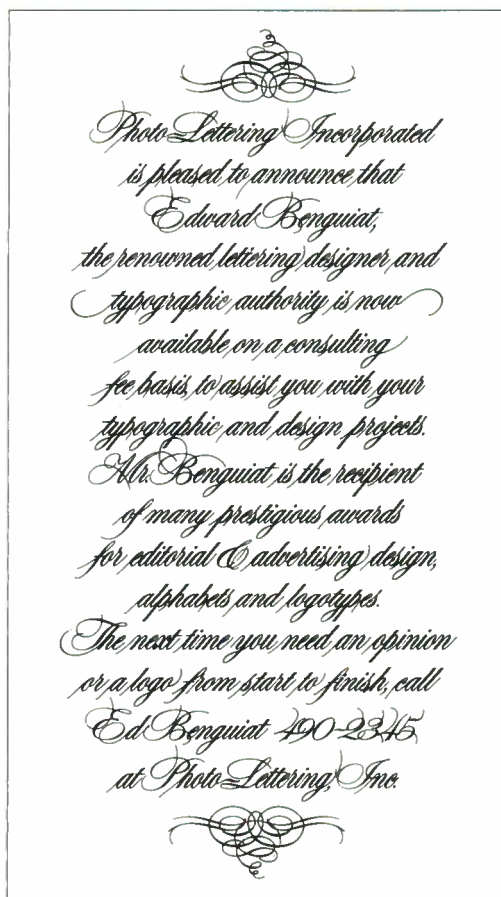 Photo-Lettering Incorporated
is pleased to announce that
Edward Benguiat,
the renowned lettering designer and
typographic authority is now
available on a consulting
fee basis, to assist you with your
typographic and design projects.
Mr. Benguiat is the recipient
of many prestigious awards
for editorial & advertising design,
alphabets and logotypes.
The next time you need an opinion
or a logo from start to finish, call
Ed Benguiat 490-2345
at Photo-Lettering, Inc.